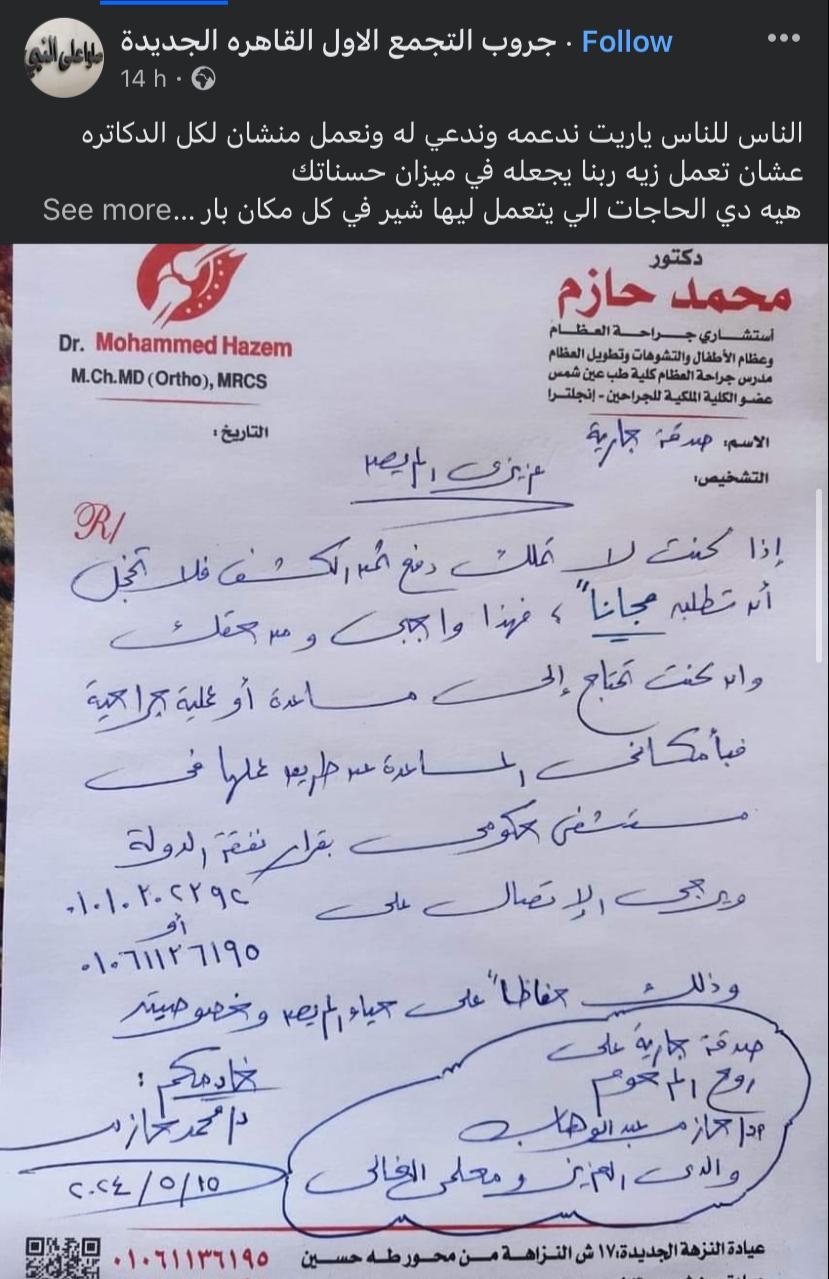 جروب التجمع الاول القاهره الجديدة · Follow
14 h ·
الناس للناس ياريت ندعمه وندعي له ونعمل منشان لكل الدكاتره
عشان تعمل زيه ربنا يجعله في ميزان حسناتك
هيه دي الحاجات الي يتعمل ليها شير في كل مكان بار ...See more
دكتور
محمد حازم
أستشاري جراحة العظام
وعظام الأطفال والتشوهات وتطويل العظام
مدرس جراحة العظام كلية طب عين شمس
عضو الكلية الملكية للجراحين - إنجلترا
Dr. Mohammed Hazem
M.Ch.MD (Ortho), MRCS
الاسم: صدقة جارية
التاريخ:
التشخيص:
عزيزى المريض
R/
إذا كنت لا تملك دفع ثمن الكشف فلا تخجل
أن تطلبه مجاناً، فهذا واجبى ومن حقك
وان كنت تحتاج إلى مساعدة أو عملية جراحية
فبأمكانى المساعدة عن طريق عملها فى
مستشفى حكومى بقرار نفقة الدولة
ويرجى الإتصال على ٠١٠١٠٢٠٢٢٩٢
أو
٠١٠٦١١٣٦١٩٥
وذلك حفاظاً على حياء المريض وخصوصيته
صدقة جارية على
روح المرحوم
د/ حازم عبد الوهاب
والدى العزيز ومعلمى الغالى
خادمكم :
د/ محمد حازم
٢٠٢٤/٥/١٥
عيادة النزهة الجديدة:١٧ ش النزاهة من محور طه حسين ٠١٠٦١١٣٦١٩٥